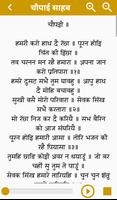 चौपाई साहब
चौपई ॥
हमरी करो हाथ दै रछा ॥ पूरन होइ
चित की इछा ॥
तव चरनन मन रहै हमारा ॥ अपना
जान करो प्रतिपारा ॥१॥
हमरे दुसट सभै तुम घावहु ॥ आपु हाथ
दै मोहि बचावहु ॥
सुखी बसै मोरो परिवारा ॥ सेवक सिख
सभै करतारा ॥२॥
मो रछा निज कर दै करियै ॥ सभ बैरिन
को आज संघरियै ॥
पूरन होइ हमारी आसा ॥ तोरि भजन की
रहै पियासा ॥३॥
तुमहि छाडि कोई अवर न धियाऊं ॥ जो बर
चहों सु तुम ते पाऊं ॥
सेवक सिख हमारे तारियहि ॥ चुन चुन शत्रु